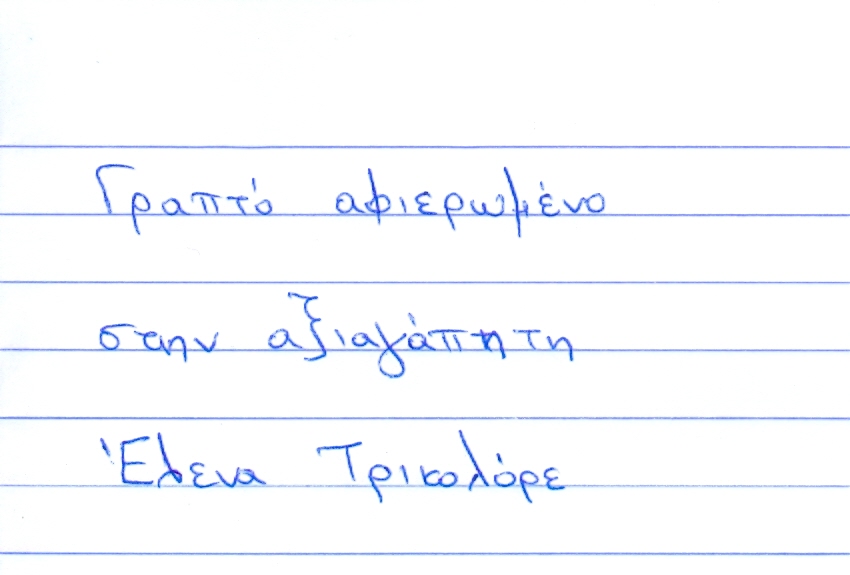 Γραπτό αφιερωμένο
στην αξιαγάπητη
Έλενα Τρικολόρε